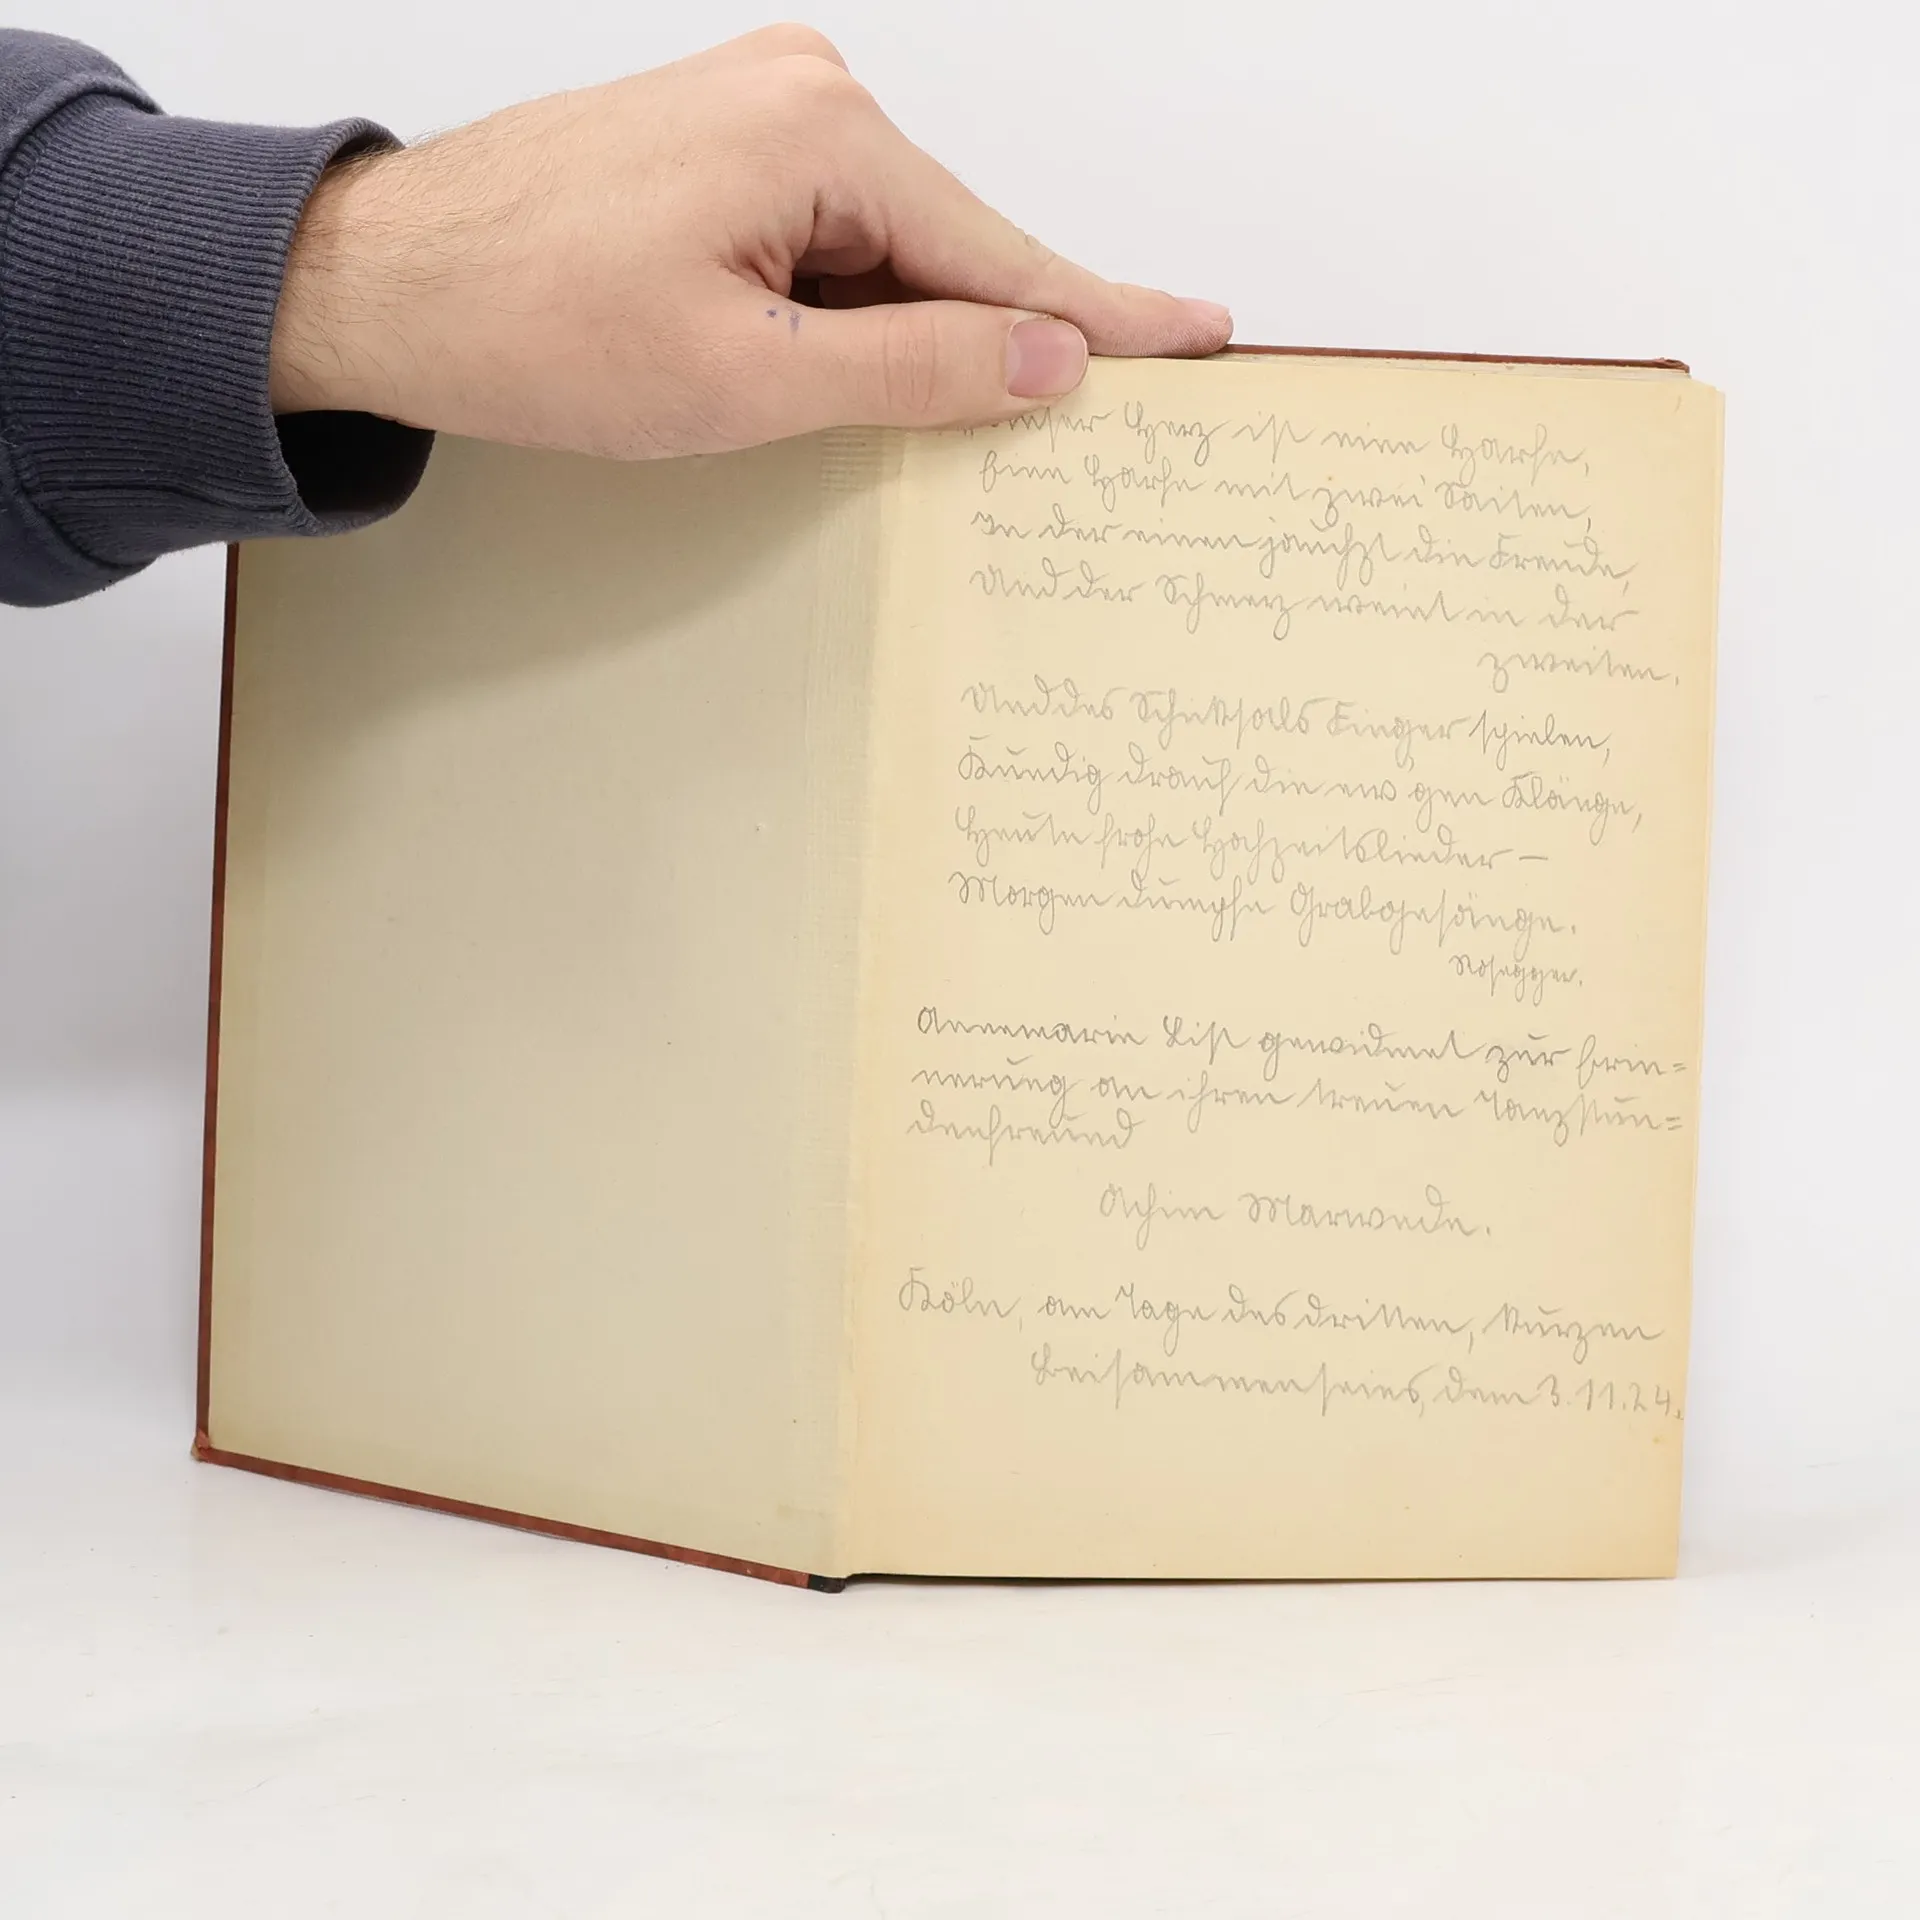 unser Herz ist eine Harfe,
Eine Harfe mit zwei Saiten,
In der einen jauchzt die Freude,
Und der Schmerz weint in der
zweiten.
Und des Schicksals Finger spielen,
Kundig drauf die ew'gen Klänge,
Heute frohe Hochzeitslieder –
Morgen dumpfe Grabgesänge.
Rosegger.
Annemarie List gewidmet zur Erin=
nerung an ihren treuen Tanzstun=
denfreund
Achim Marwede.
Köln, am Tage des dritten, kurzen
Beisammenseins, dem 3.11.24.